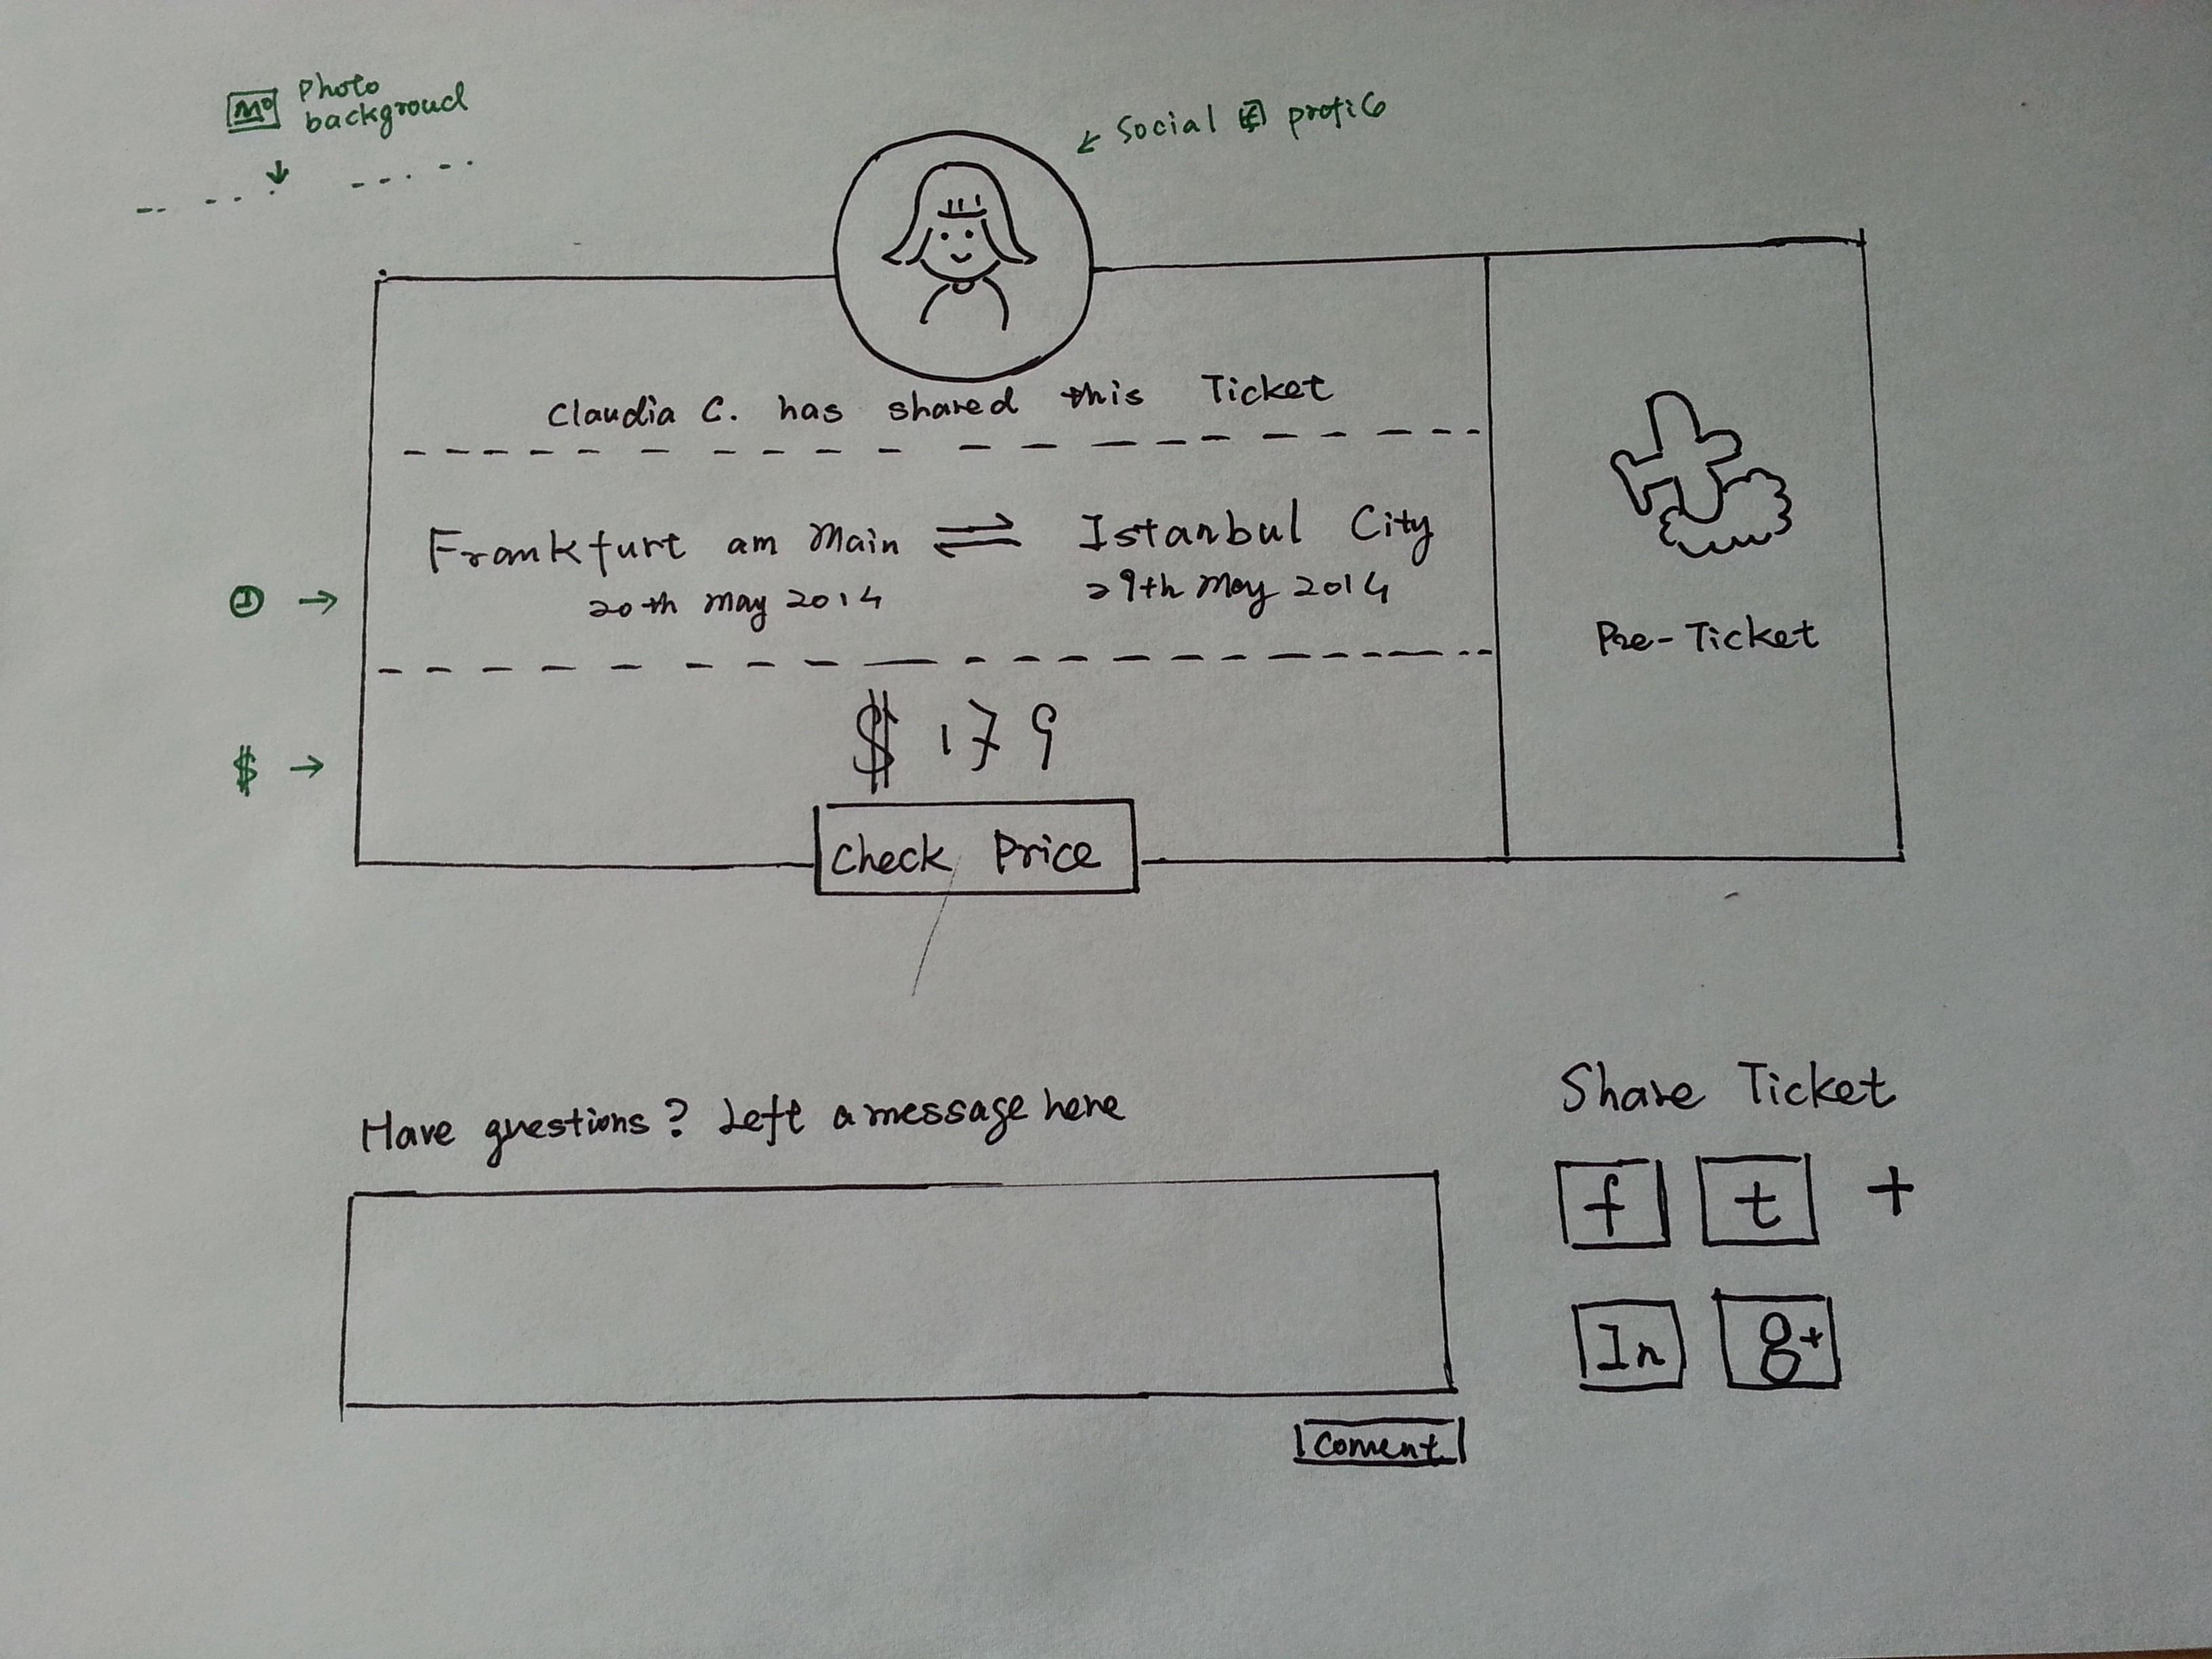 Photo
backgroud
Social f profile
Claudia C. has shared this Ticket
Frankfurt am Main ⇌ Istanbul City
20th May 2014 29th May 2014
Pre-Ticket
$ →
$ 179
Check Price
Have questions? Left a message here
Share Ticket
f t +
In g+
Coment